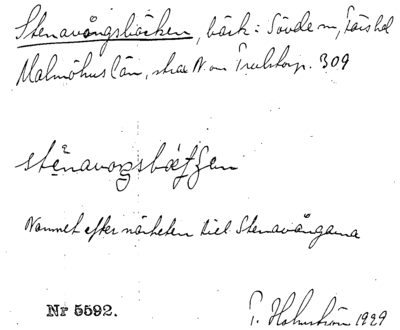 Stenavångsbäcken, bäck i Sövde sn, Färs hd
Malmöhus län, strax N. om Trulstorp. 309
Namnet efter närheten till Stenavångarna
Nr 5592.
T. Holmström 1929